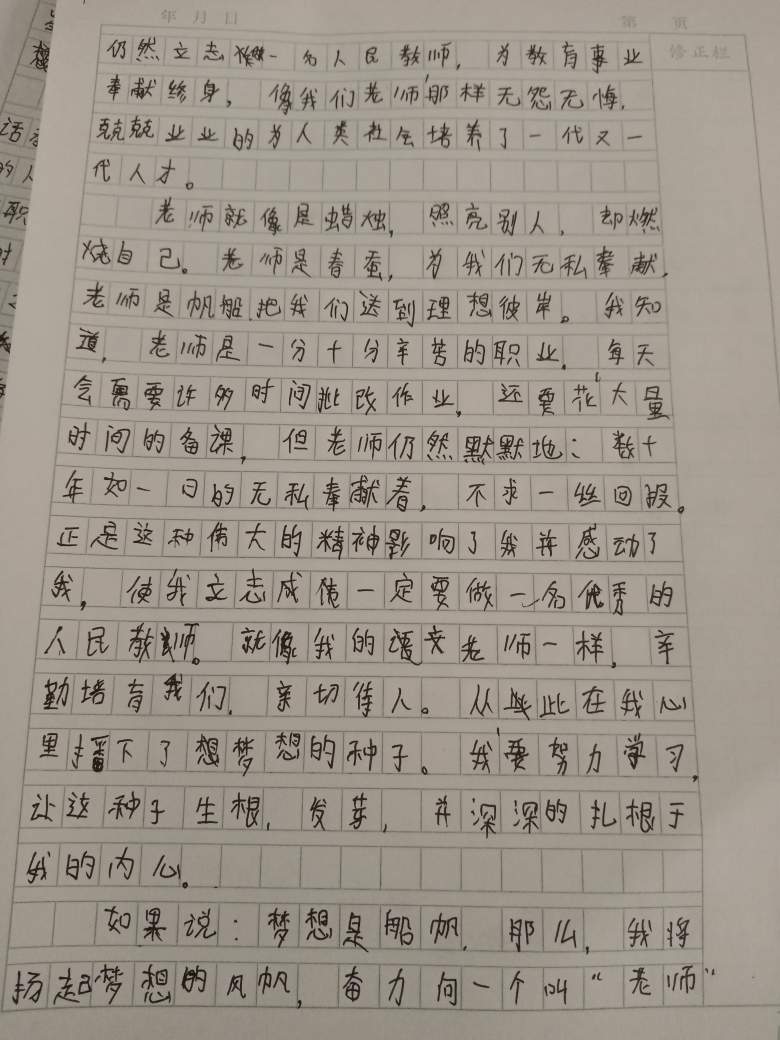 年 月 日 第 页
修正栏
仍然立志做一名人民教师，为教育事业
奉献终身，像我们老师那样无怨无悔，
兢兢业业的为人类社会培养了一代又一
代人才。
老师就像是蜡烛，照亮别人，却燃
烧自己。老师是春蚕，为我们无私奉献，
老师是帆船，把我们送到理想彼岸。我知
道，老师是一分十分辛苦的职业，每天
会需要许多时间批改作业，还要花大量
时间的备课，但老师仍然默默地：数十
年如一日的无私奉献着，不求一丝回报。
正是这种伟大的精神影响了我并感动了
我，使我立志成德一定要做一名优秀的
人民教师。就像我的语文老师一样，辛
勤培育我们，亲切待人。从此在我心
里播下了想梦想的种子。我要努力学习，
让这种子生根，发芽，并深深的扎根于
我的内心。
如果说：梦想是船帆，那么，我将
扬起梦想的风帆，奋力向一个叫“老师”